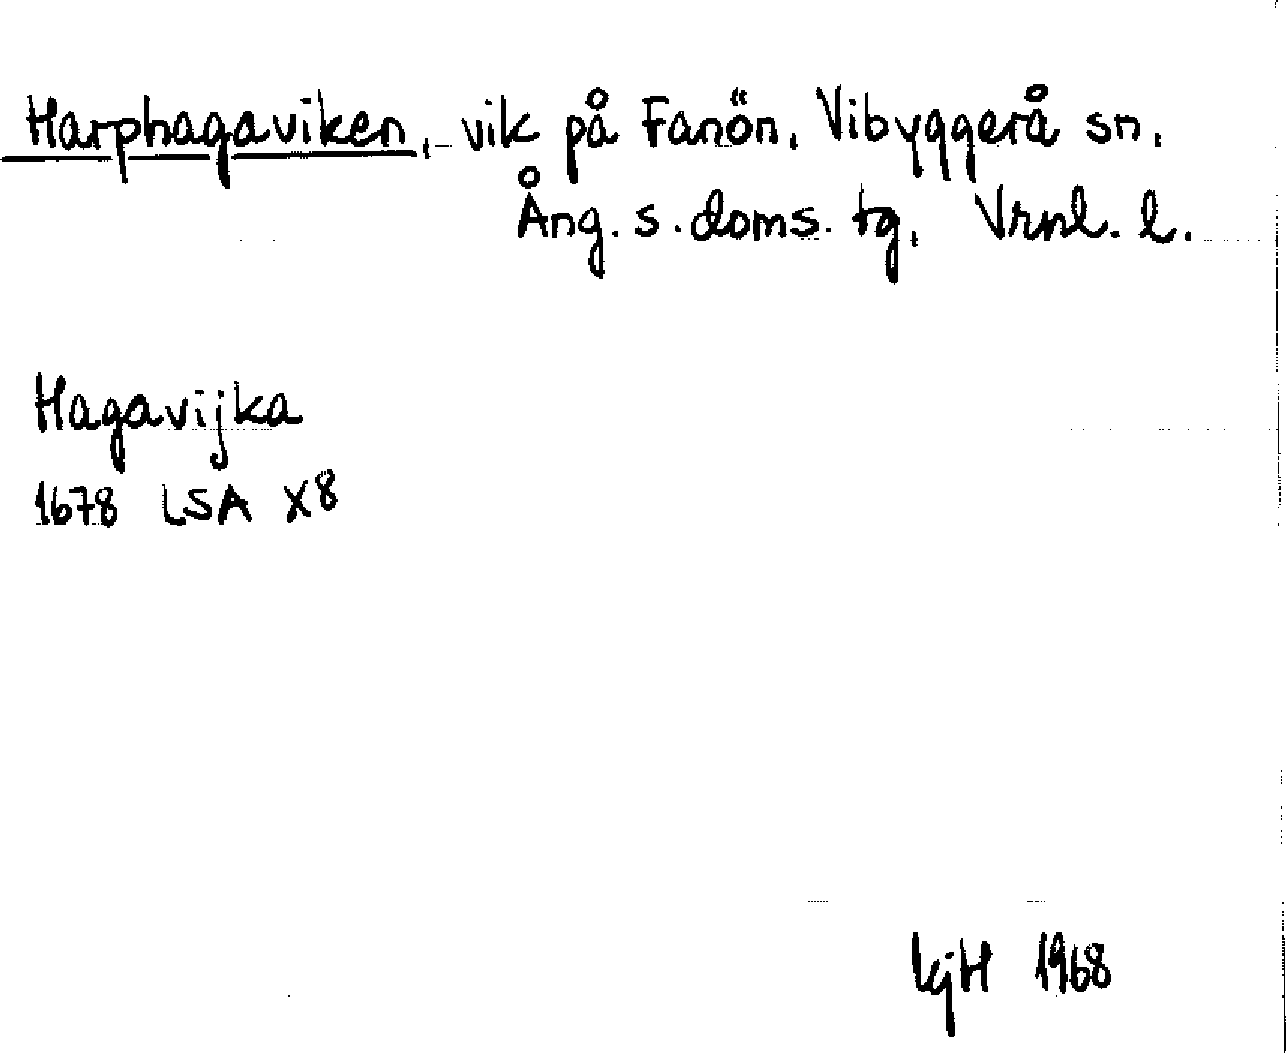 Harphagaviken, vik på Fanön, Vibyggerå sn,
Ång. s. doms. tg, Vrnl. l.
Hagavijka
1678 LSA X8
kjH 1968